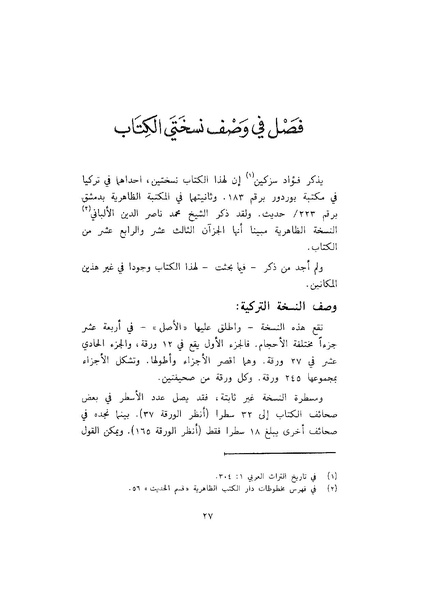 فَصْل في وَصْف نسخَتَي الكِتَاب
يذكر فؤاد سزكين(١) إن لهذا الكتاب نسختين، احداهما في تركيا
في مكتبة بوردور برقم ١٨٣. وثانيتهما في المكتبة الظاهرية بدمشق
برقم ٢٢٣/ حديث. ولقد ذكر الشيخ محمد ناصر الدين الألباني(٢)
النسخة الظاهرية مبينا أنها الجزآن الثالث عشر والرابع عشر من
الكتاب.
ولم أجد من ذكر - فيما بحثت - لهذا الكتاب وجودا في غير هذين
المكانين.
وصف النسخة التركية:
تقع هذه النسخة - واطلق عليها «الأصل» - في أربعة عشر
جزءاً مختلفة الأحجام. فالجزء الأول يقع في ١٢ ورقة، والجزء الحادي
عشر في ٢٧ ورقة. وهما اقصر الأجزاء وأطولها. وتشكل الأجزاء
بمجموعها ٢٤٥ ورقة. وكل ورقة من صحيفتين.
ومسطرة النسخة غير ثابتة، فقد يصل عدد الأسطر في بعض
صحائف الكتاب إلى ٣٢ سطرا (أنظر الورقة ٣٧). بينما نجده في
صحائف أخرى يبلغ ١٨ سطرا فقط (أنظر الورقة ١٦٥). ويمكن القول
(١) في تاريخ التراث العربي ١: ٣٠٤.
(٢) في فهرس مخطوطات دار الكتب الظاهرية «قسم الحديث» ٥٦.
٢٧